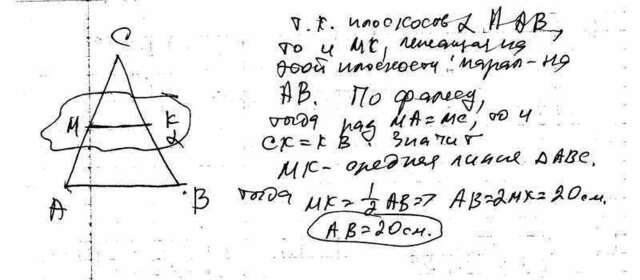 C
M K
α
A B
т.к. плоскость α ∥ AB,
то и MK, лежащая на
этой плоскости парал-на
AB. По фалесу,
тогда раз MA=MC, то и
CK=KB. Значит
MK - средняя линия ΔABC.
тогда MK = 1/2 AB => AB=2MK=20см.
AB=20см.